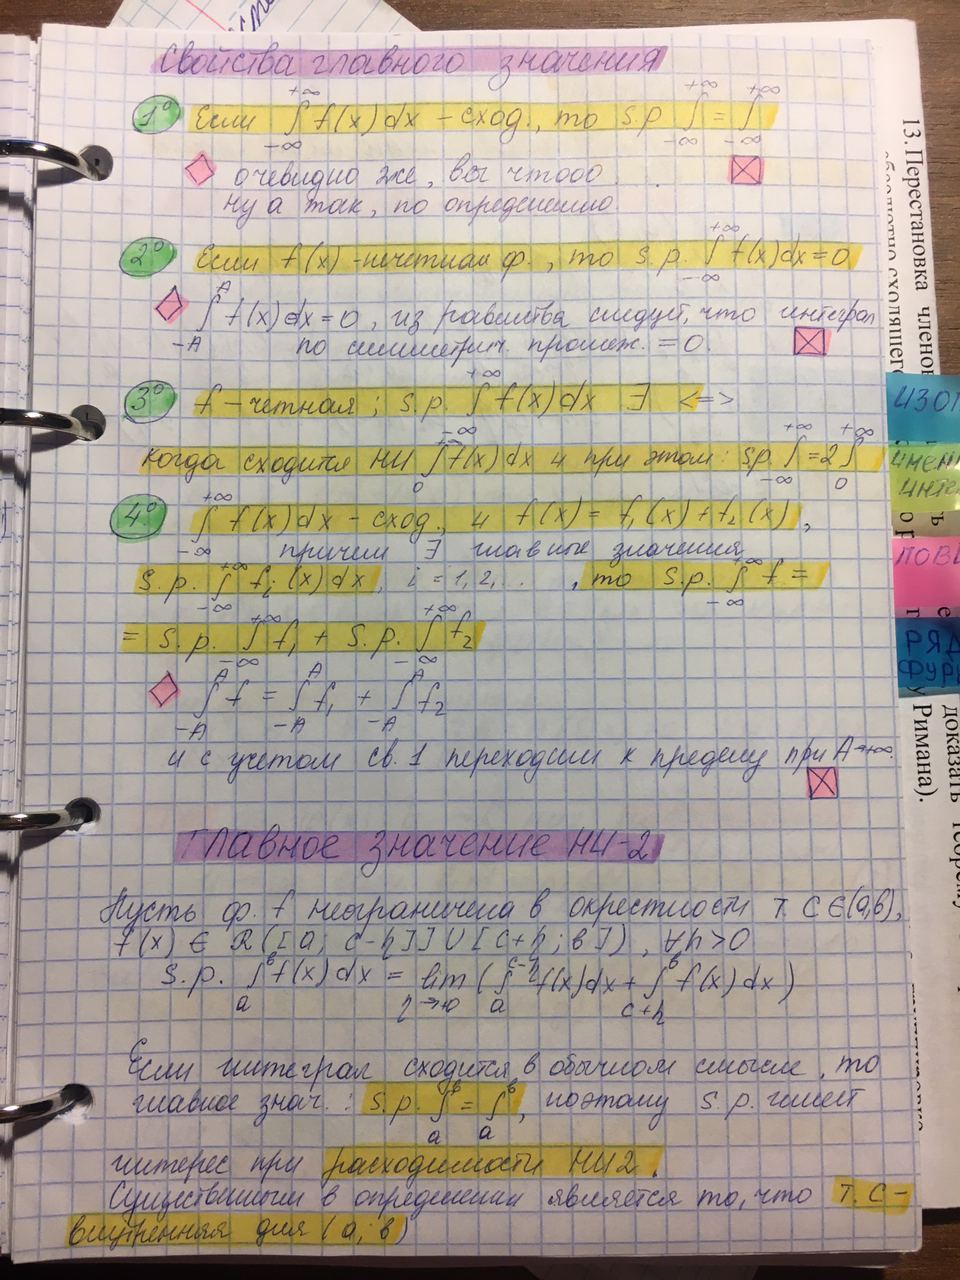 Свойства главного значения
1° Если ∫_{-∞}^{+∞} f(x)dx - сход., то s.p. ∫_{-∞}^{+∞} = ∫_{-∞}^{+∞}
очевидно же, вы чтооо . .
ну а так, по определению.
2° Если f(x) - нечетная ф., то s.p. ∫_{-∞}^{+∞} f(x)dx = 0
∫_{-A}^{A} f(x)dx = 0, из равенства следует, что интеграл
по симметрич. промеж. = 0.
3° f - четная; s.p. ∫_{-∞}^{+∞} f(x)dx ∃ <=>
когда сходится НИ ∫_{0}^{+∞} f(x)dx и при этом: s.p. ∫_{-∞}^{+∞} = 2∫_{0}^{+∞}
4° ∫_{-∞}^{+∞} f(x)dx - сход., и f(x) = f₁(x) + f₂(x),
причем ∃ главные значения
s.p. ∫_{-∞}^{+∞} f_i(x)dx, i = 1,2,... , то s.p. ∫_{-∞}^{+∞} f =
= s.p. ∫_{-∞}^{+∞} f₁ + s.p. ∫_{-∞}^{+∞} f₂
∫_{-A}^{A} f = ∫_{-A}^{A} f₁ + ∫_{-A}^{A} f₂
и с учетом св. 1 переходим к пределу при A→+∞.
Главное значение НИ-2
Пусть ф. f неограничена в окрестности т. C ∈ (a,b),
f(x) ∈ R([a; c-η]) ∪ [c+η; b]), ∀η>0
s.p. ∫_{a}^{b} f(x)dx = lim_{η→+0} (∫_{a}^{c-η} f(x)dx + ∫_{c+η}^{b} f(x)dx)
Если интеграл сходится в обычном смысле, то
главное знач.: s.p. ∫_{a}^{b} = ∫_{a}^{b}, поэтому s.p. имеет
интерес при расходимости НИ2.
Существенным в определении является то, что т. C -
внутренняя для (a; b)
13. Перестановка членов
сходящегос
доказать теорему
Римана).
ИЗОП
ИМЕН
ИНТЕ
ПОВЕ
РЯД
ФУРЬ